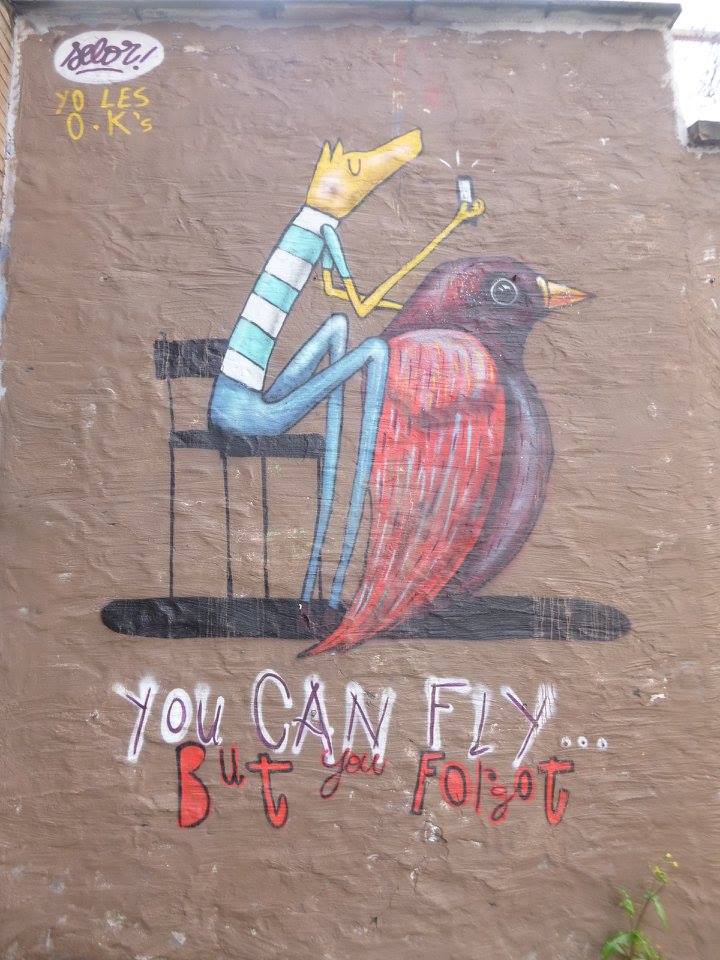 selor!
YO LES
O.K's
YOU CAN FLY...
But you Forgot